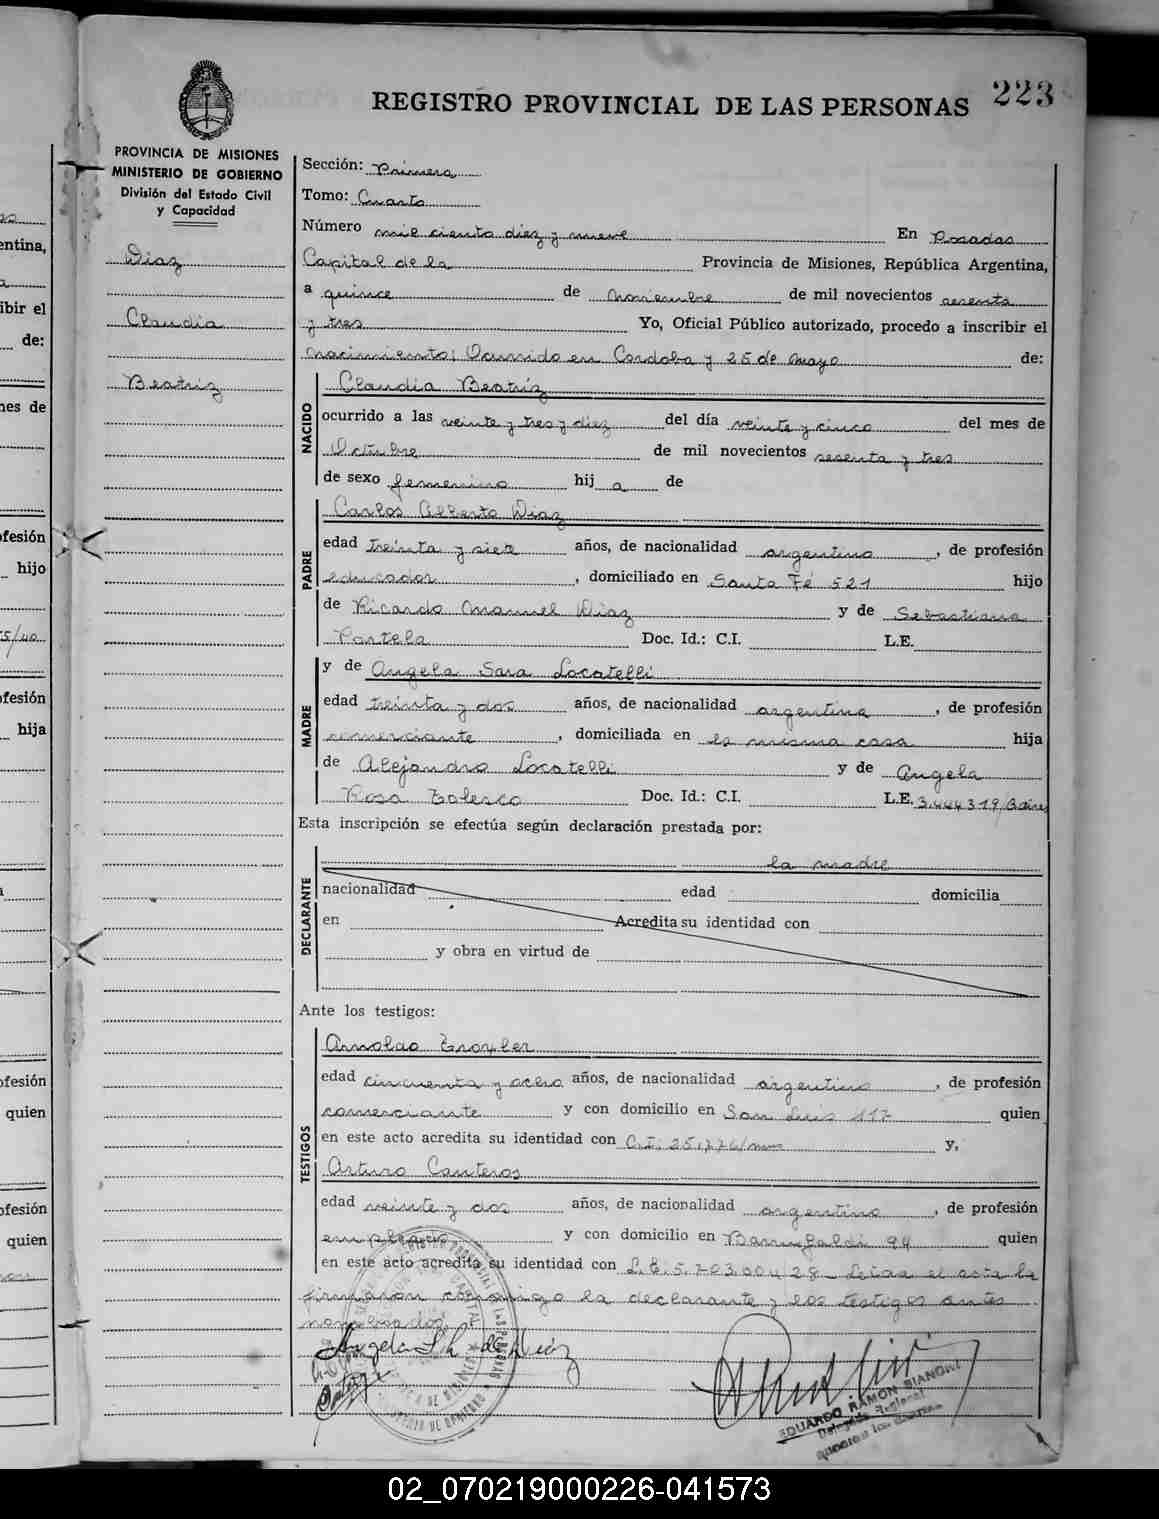 223
REGISTRO PROVINCIAL DE LAS PERSONAS
PROVINCIA DE MISIONES
MINISTERIO DE GOBIERNO
División del Estado Civil
y Capacidad
Diaz
Claudia
Beatriz
Sección: Primera
Tomo: Cuarto
Número mil ciento diez y nueve En Posadas
Capital de la Provincia de Misiones, República Argentina,
a quince de Noviembre de mil novecientos sesenta
y tres Yo, Oficial Público autorizado, procedo a inscribir el
nacimiento: Ocurrido en Cordoba y 25 de mayo de:
NACIDO
Claudia Beatriz
ocurrido a las veinte y tres y diez del día veinte y cinco del mes de
Octubre de mil novecientos sesenta y tres
de sexo femenino hij a de
PADRE
Carlos Alberto Diaz
edad treinta y siete años, de nacionalidad argentino, de profesión
educador, domiciliado en Santa Fé 521 hijo
de Ricardo Manuel Diaz y de Sebastiana
Portela Doc. Id.: C.I. L.E.
MADRE
y de Angela Sara Locatelli
edad treinta y dos años, de nacionalidad argentina, de profesión
comerciante, domiciliada en la misma casa hija
de Alejandro Locatelli y de Angela
Rosa Doc. Id.: C.I. L.E. 3.444.319/
Esta inscripción se efectúa según declaración prestada por:
DECLARANTE
la madre
nacionalidad edad domicilia
en Acredita su identidad con
y obra en virtud de
Ante los testigos:
TESTIGOS
Arnoldo Troxler
edad cincuenta y ocho años, de nacionalidad argentino, de profesión
comerciante y con domicilio en San Luis 117 quien
en este acto acredita su identidad con C.I. 25.776/ y,
Arturo Canteros
edad veinte y dos años, de nacionalidad argentino, de profesión
empleado y con domicilio en 94 quien
en este acto acredita su identidad con Leida el acta la
firmaron conmigo la declarante y los testigos antes
nombrados.
Angela S L de Diaz
EDUARDO RAMON BIANCHI
ibir el
de:
hijo
hija
quien
quien
02_070219000226-041573